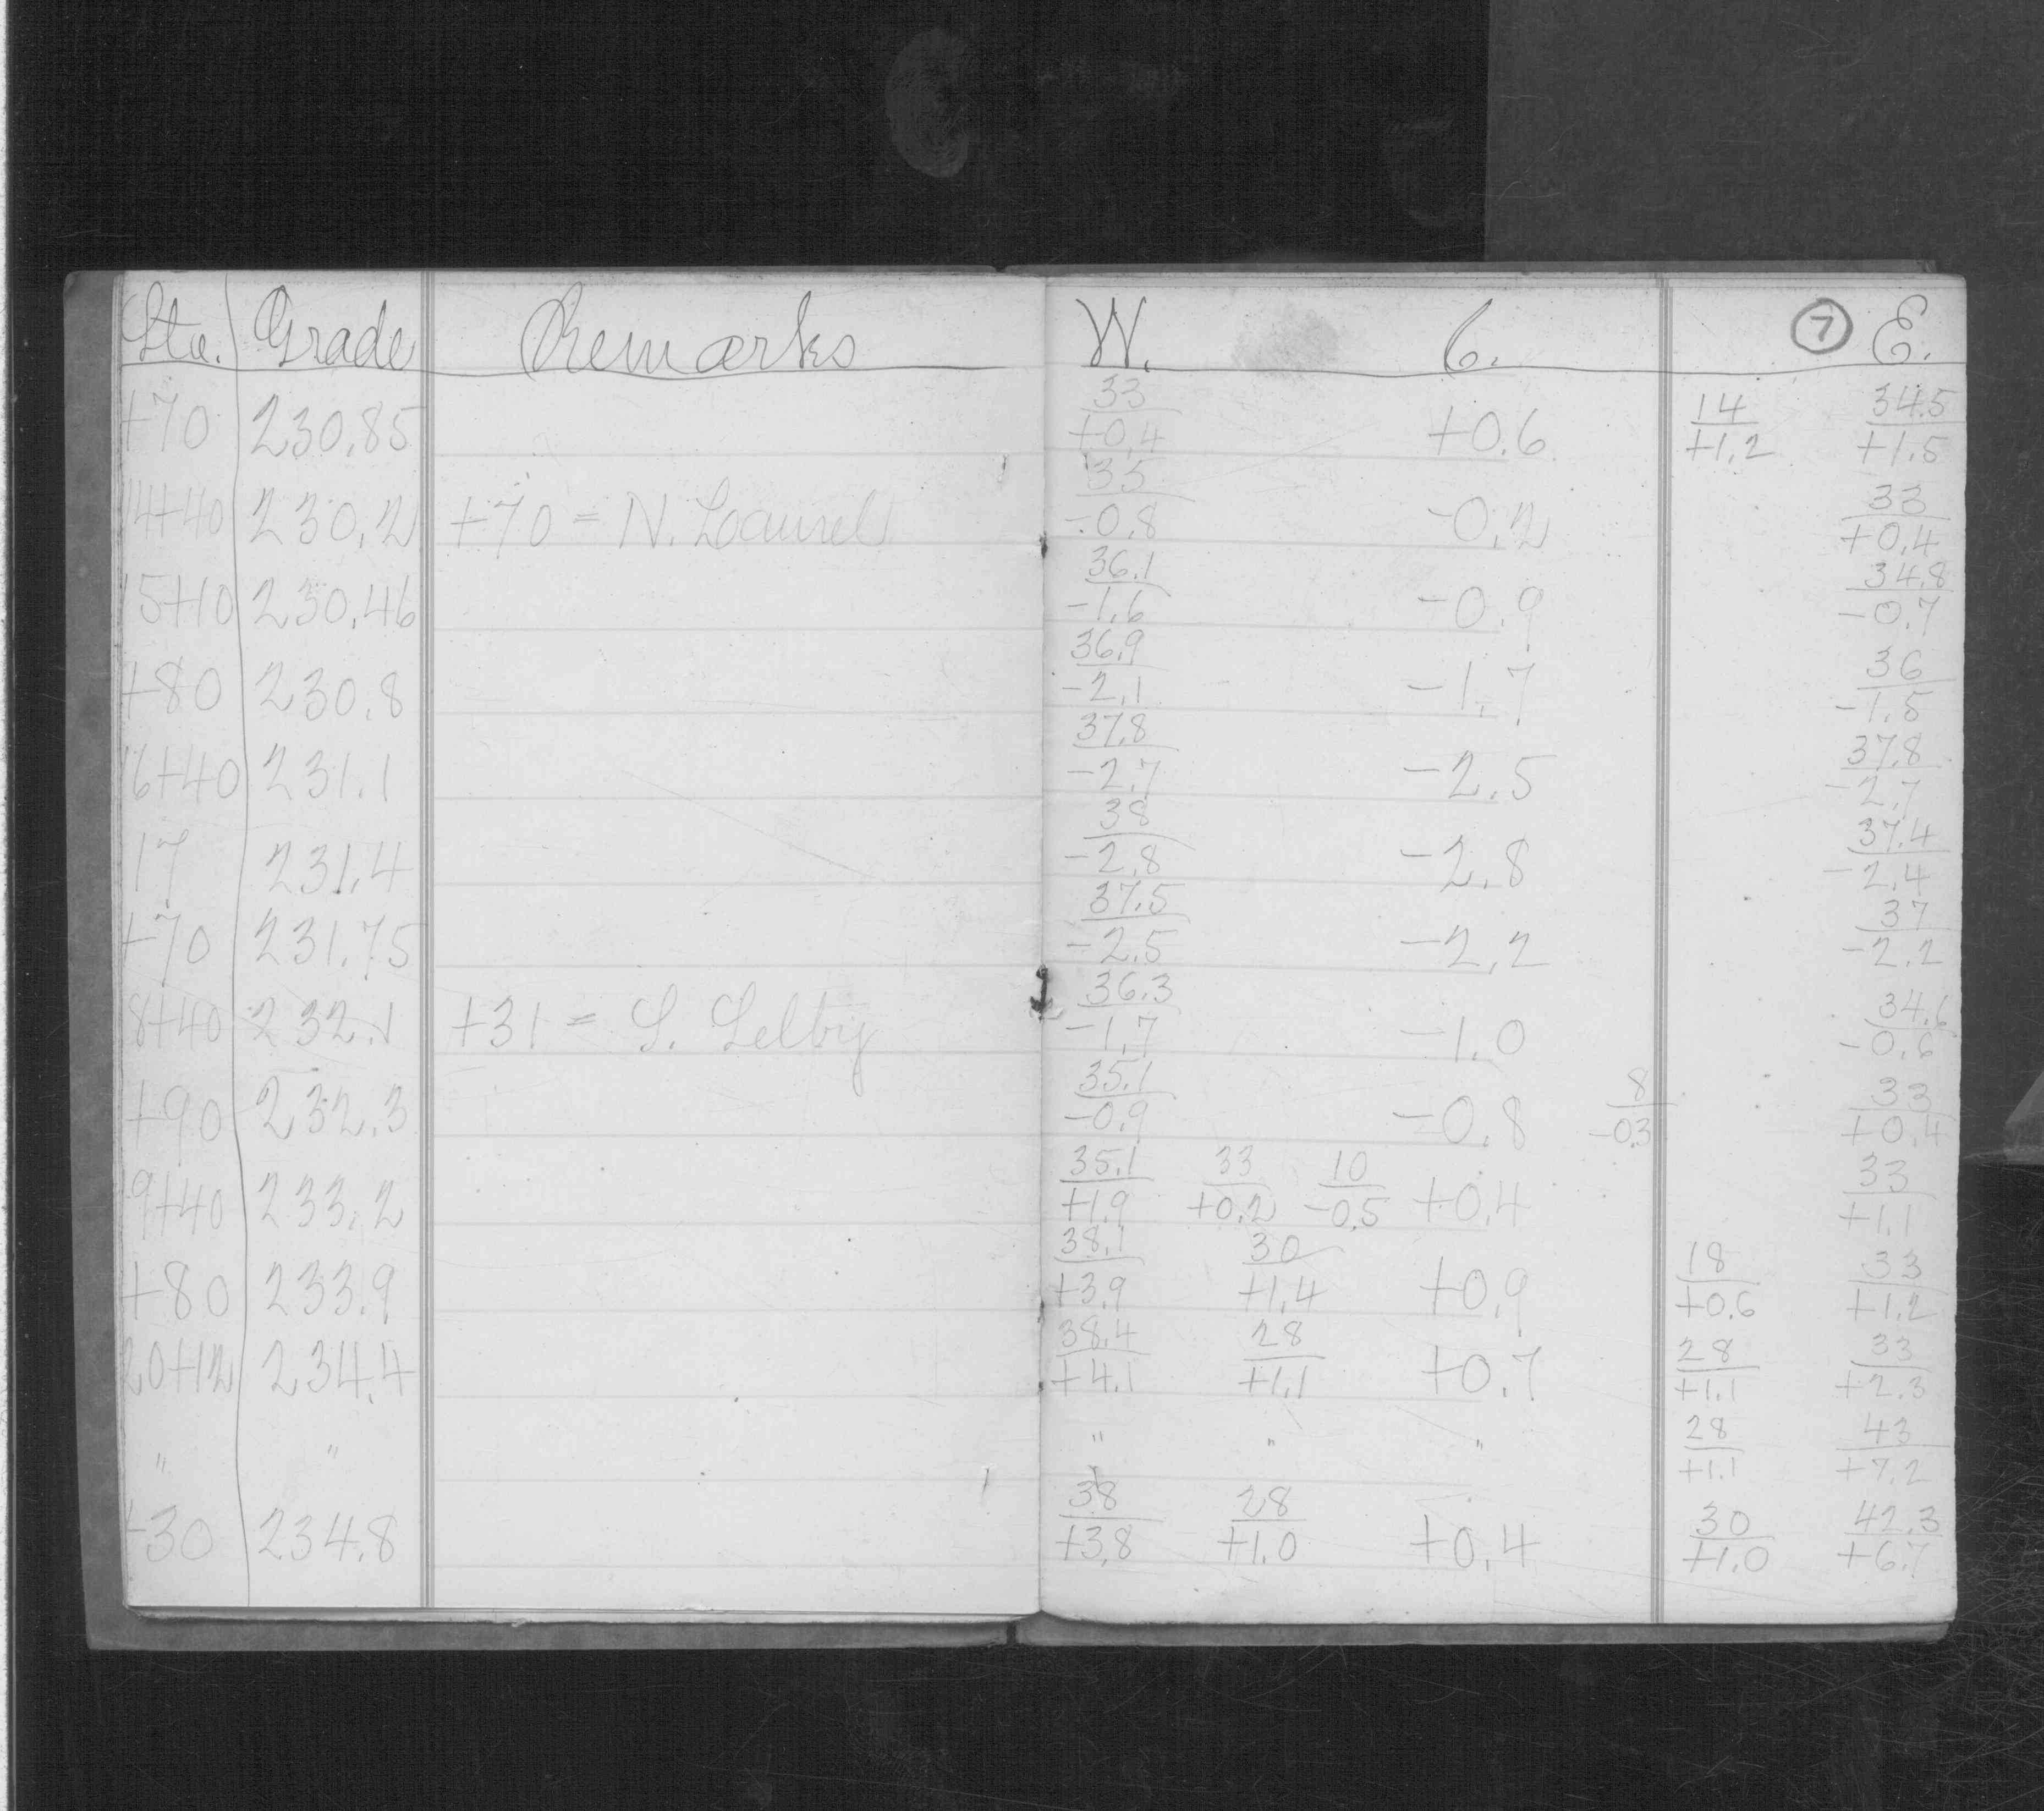 Sta. Grade Remarks W. C. 7 E.
+70 230.85 33/+0.4 +0.6 14/+1.2 34.5/+1.5
14+40 230.2 +70 = N. Laurel 33/-0.8 -0.2 33/+0.4
15+10 230.46 36.1/-1.6 -0.9 34.8/-0.7
+80 230.8 36.9/-2.1 -1.7 36/-1.5
16+40 231.1 37.8/-2.7 -2.5 37.8/-2.7
17 231.4 38/-2.8 -2.8 37.4/-2.4
+70 231.75 37.5/-2.5 -2.2 37/-2.2
18+40 232.1 +31 = S. Selby 36.3/-1.7 -1.0 34.6/-0.6
+90 232.3 35.1/-0.9 -0.8 8/-0.3 33/+0.4
19+40 233.2 35.1/+1.9 33/+0.2 10/-0.5 +0.4 33/+1.1
+80 233.9 38.1/+3.9 30/+1.4 +0.9 18/+0.6 33/+1.2
20+12 234.4 38.4/+4.1 28/+1.1 +0.7 28/+1.1 33/+2.3
" " " " " 28/+1.1 43/+7.2
+30 234.8 38/+3.8 28/+1.0 +0.4 30/+1.0 42.3/+6.7